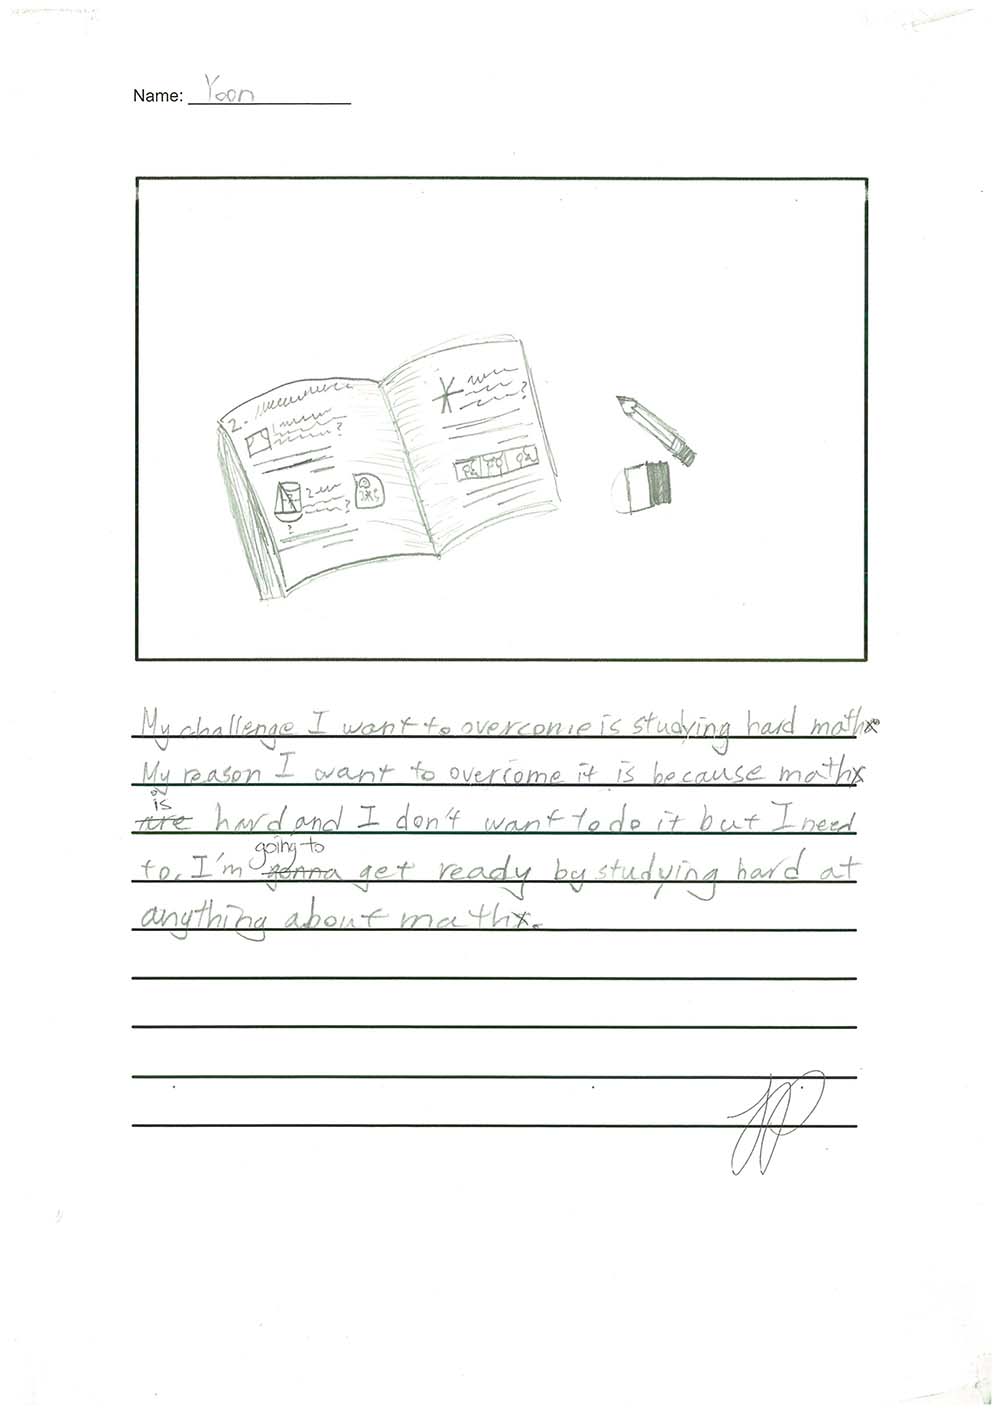 Name: Yoon
2.
?
?
2
?
?
?
My challenge I want to overcome is studying hard math.
My reason I want to overcome it is because math
is
are hard and I don't want to do it but I need
going to
to. I'm gonna get ready by studying hard at
anything about math.